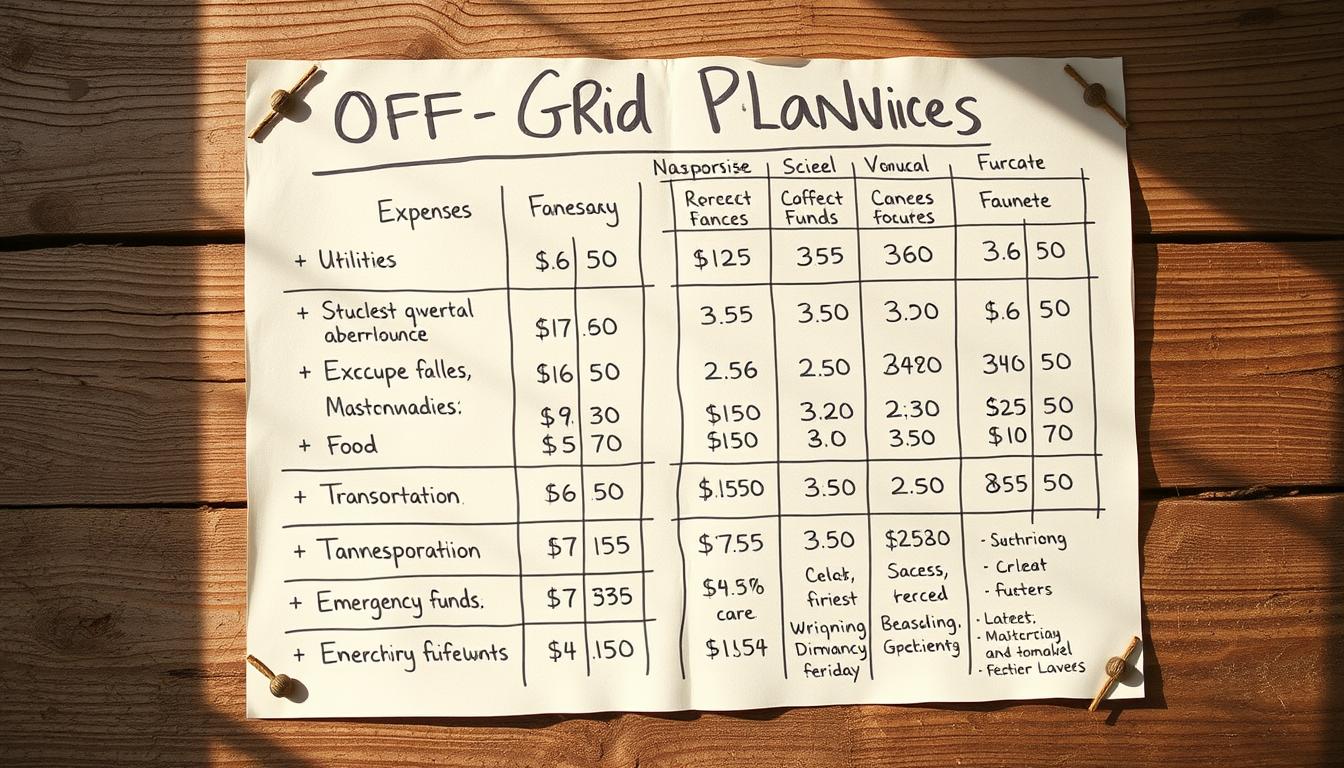 OFF-GRid PLaNViices
Nasporsise Scieel Vonucal Furcate
Expenses Fanesaxy Rereect Fances Coffect Funds Canees focutes Faunete
+ Utilities $.6 50 $125 355 360 3.6 50
+ Stuclest qwertal aberrlounce $17 .60 3.55 3.50 $.6 50
+ Exccupe falles, $16 50 2.56 2.50 3480 340 50
Mastonnadies: $9. 30 $150 3.20 2:30 $25 50
+ Food $5 70 $150 3.0 3.50 $10 70
+ Transortation. $6 .50 $.1550 3.50 2.50 855 50
+ Tannesporatiion $7 155 $7.55 3.50 $2580 - Suchriong
+ Emergency funds. $7 335 $4.5% care Celat, firiest Sacess, rerced - Crleat
- fueters
+ Enerchiry fufewnts $4 .150 $1154 Wriqning Dimvancy feriday Beascling. Gpctientg - Lateet.
- Maiterciay
and tomatiel
- Fectier Lavees